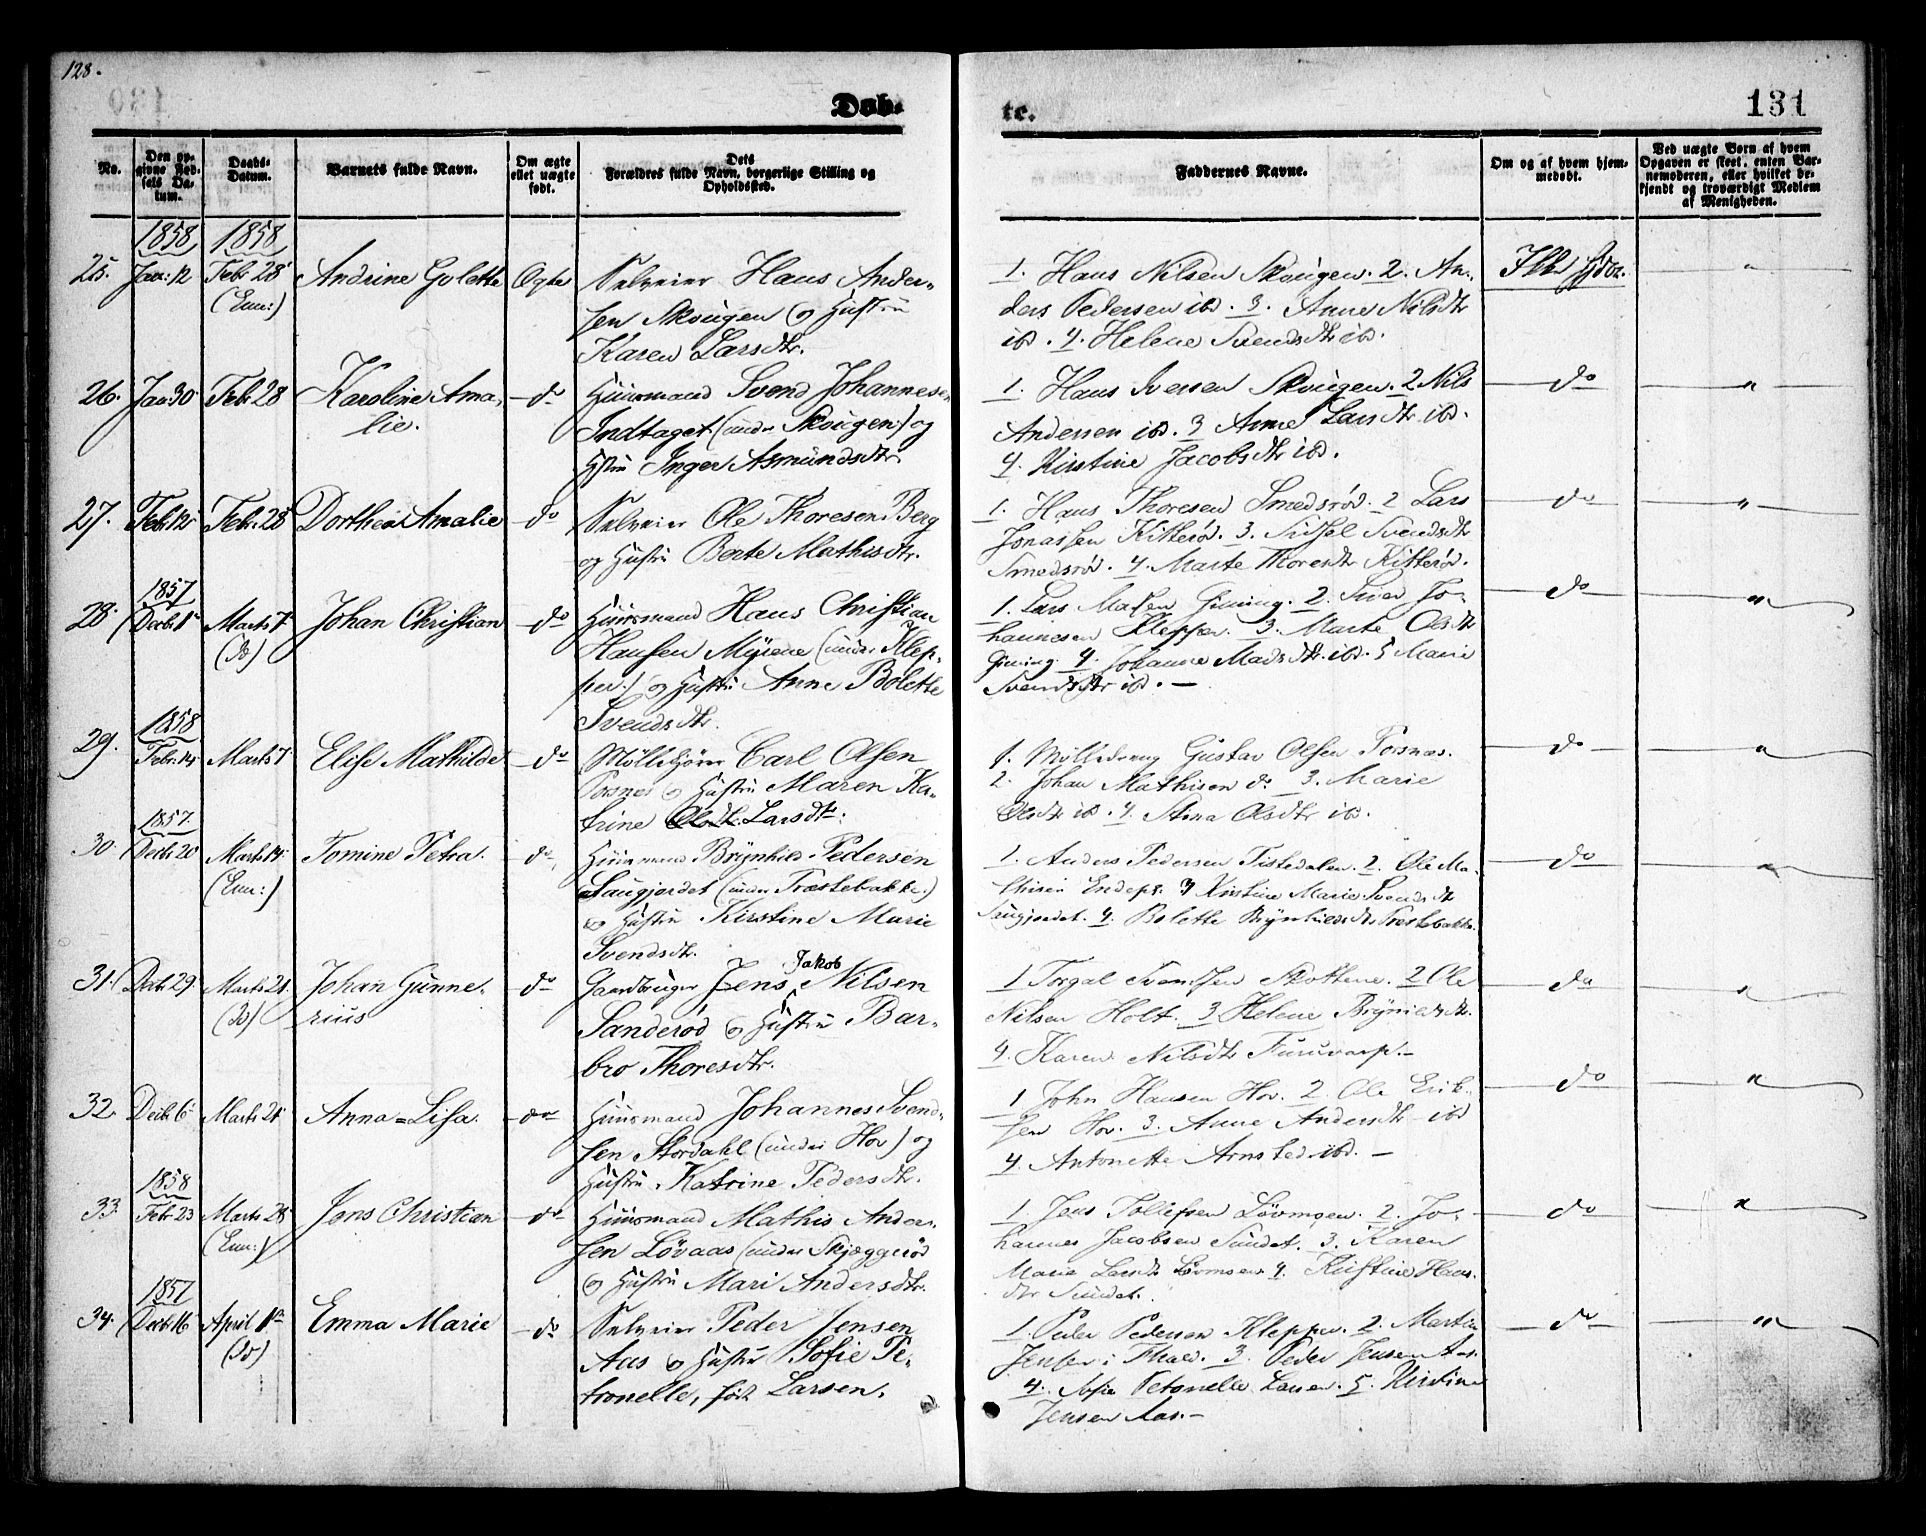 128.
131
Døb-
te.
No.
Den op-
givne Fød-
sels Da-
tum.
Daabs-
Datum.
Barnets fulde Navn.
Om ægte
ellet uægte
født.
Dets
Forældres fulde Navn, borgerlige Stilling og
Opholdssted.
Faddernes Navne.
Om og af hvem hjem-
medøbt.
Ved uægte Børn af hvem
Opgaven er skeet, enten Bar-
nemoderen, eller hvilket be-
kjendt og troværdigt Medlem
af Menigheden.
1858 1858
25. Jan: 12 Feb: 28 Andrine Golette Ægte Selveier Hans Ander-
(Enn:) sen Skougen og Hustru
Karen Larsdtr.
1. Hans Nilsen Skougen. 2. An-
ders Pedersen ibd. 3. Anne Nilsdtr
ibd. 4. Helene Svendsdtr ibd.
Ikke hjdøbt.
26. Jan: 30 Feb: 28 Karoline Ama- do Huusmand Svend Johannesen
lie. Indtaget (under Skougen) og
Hstru Inger Asmundsdtr.
1. Hans Iversen Skougen. 2 Nils
Andersen ibd. 3 Anne Larsdtr ibd.
4. Kirstine Jacobsdtr ibd.
do
27. Feb: 12 Feb: 28 Dorthea Amalie do Selveier Ole Thoresen Berg
og Hustru Berte Mathisdtr.
1. Hans Thoresen Smedsrød. 2 Lars
Jonassen Kitterød. 3. Sissel Svendsdtr
Smedsrød. 4. Marte Thoresdtr Kitterød.
do
1857
28. Decb: 1 Marts 7 Johan Christian do Huusmand Hans Christian
(Do) Hansen Myrene (under Klep-
per) og Hustru Anne Bolette
Svendsdtr.
1. Lars Madsen 2. Iver Jo-
hannesen Klepper. 3. Marte Olsdtr
4. Johanne Madsdtr. ibd. 5 Marie
Svendsdtr ibd. —
do
1858
29. Feb: 14 Marts 7 Elise Mathilde do Møllekjører Carl Olsen
Posnes og Hustru Maren Ka-
trine Olsdtr. Larsdtr:
1. Mølledreng Gustav Olsen Posnæs.
2. Johan Mathisen do 3. Marie
Olsdtr ibd. 4. Anna Olsdtr ibd.
do
1857.
30. Decb: 20 Marts 14 Tomine Petra. do Huusmand Brynhild Pedersen
(Enn:) Saugjordet (under Træstebakke)
og Hustru Kirstine Marie
Svendsdtr.
1. Anders Pedersen Tistedalen. 2. Ole Ma-
thisen 3 Kirstine Marie Svendsdtr
Saugjordet. 4. Bolette Brynhildsdtr Træstebakke.
do
31. Decb: 29 Marts 21 Johan Gunne- do Gaardbruger Jens Jakob Nilsen
(Do) rius Sanderød og Hustru Bar-
bro Thoresdtr.
1 Torgal Svendsen Skottene. 2 Ole
Nilsen Holt. 3 Helene Brynildsdtr.
4. Karen Nilsdtr —
do
32. Decb: 6 Marts 21 Anna=Lisa. do Huusmand Johannes Svend-
sen Stordahl (under Hov) og
Hustru Katrine Pedersdtr.
1 John Hansen Hov. 2 Ole Erik-
sen Hov. 3. Anne Andersdtr ibd
4. Antonette Arnsted ibd. —
do
1858
33. Feb: 23 Marts 28 Jens Christian do Huusmand Mathis Ander-
(Enn:) sen Løvaas (under Skjæggerød
og Hustru Mari Andersdtr.
1. Jens Tollefsen 2. Jo-
hannes Jacobsen Sundet. 3. Karen
Marie Larsdtr 4. Kirstine Hans-
dtr Sundet.
do
1857
34. Decb: 16 April 1ste Emma Marie do Selveier Peder Jensen
(Do) Aas og Hustru Sofie Pe-
tronelle, født Larsen.
1. Peder Pedersen Klepper. 2. Martin
Jensen i Fhald. 3. Peder Jensen Aas.
4. Sofie Petronelle Larsen. 5. Kirstine
Jensen Aas. —
do